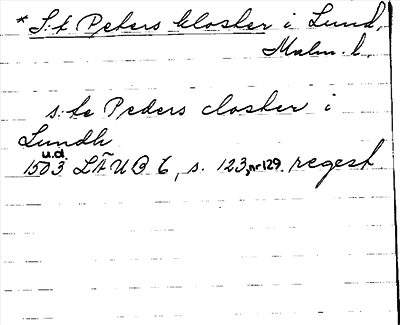 * S:t Peders kloster i Lund,
Malm. l.
s:te Peders closter i
Lundh
u.d.
1503 LÄUB 6, s. 123, nr 129. regest